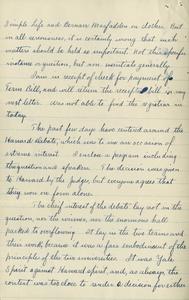 simple life and Bernarr Macfadden in clothes. But
in all seriousness, it is certainly wrong that such
matters should be held so important. Not this specific
instance or question, but seriously generally.
I am in receipt of check for payment of
Term Bill, and will return the receipted bill in my
next letter. Was not able to find the registrar in
today.
The past few days have centered around the
Harvard debate, which was to me an occasion of
extreme interest. I enclose a program including
the question and speakers. The decision was given
to Harvard by the judges, but everyone agrees that
they won on form alone.
The chief interest of the debate lay not in the
question, nor the winner, nor the enormous hall
packed to overflowing. It lay in the two teams and
their work, because it was a fair embodiment of the
principles of the two universities. It was Yale
Spirit against Harvard spirit, and, as always, the
contest was too close to render a decision for either